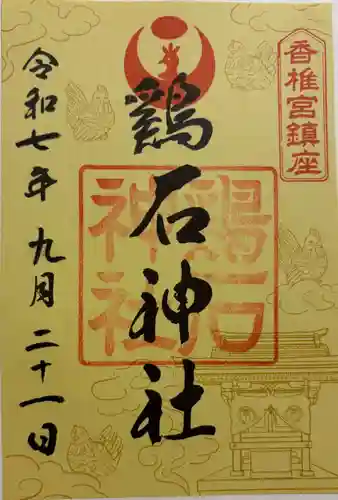 香椎宮鎮座
鶏石神社
鶏石
神社
令和七年九月二十一日